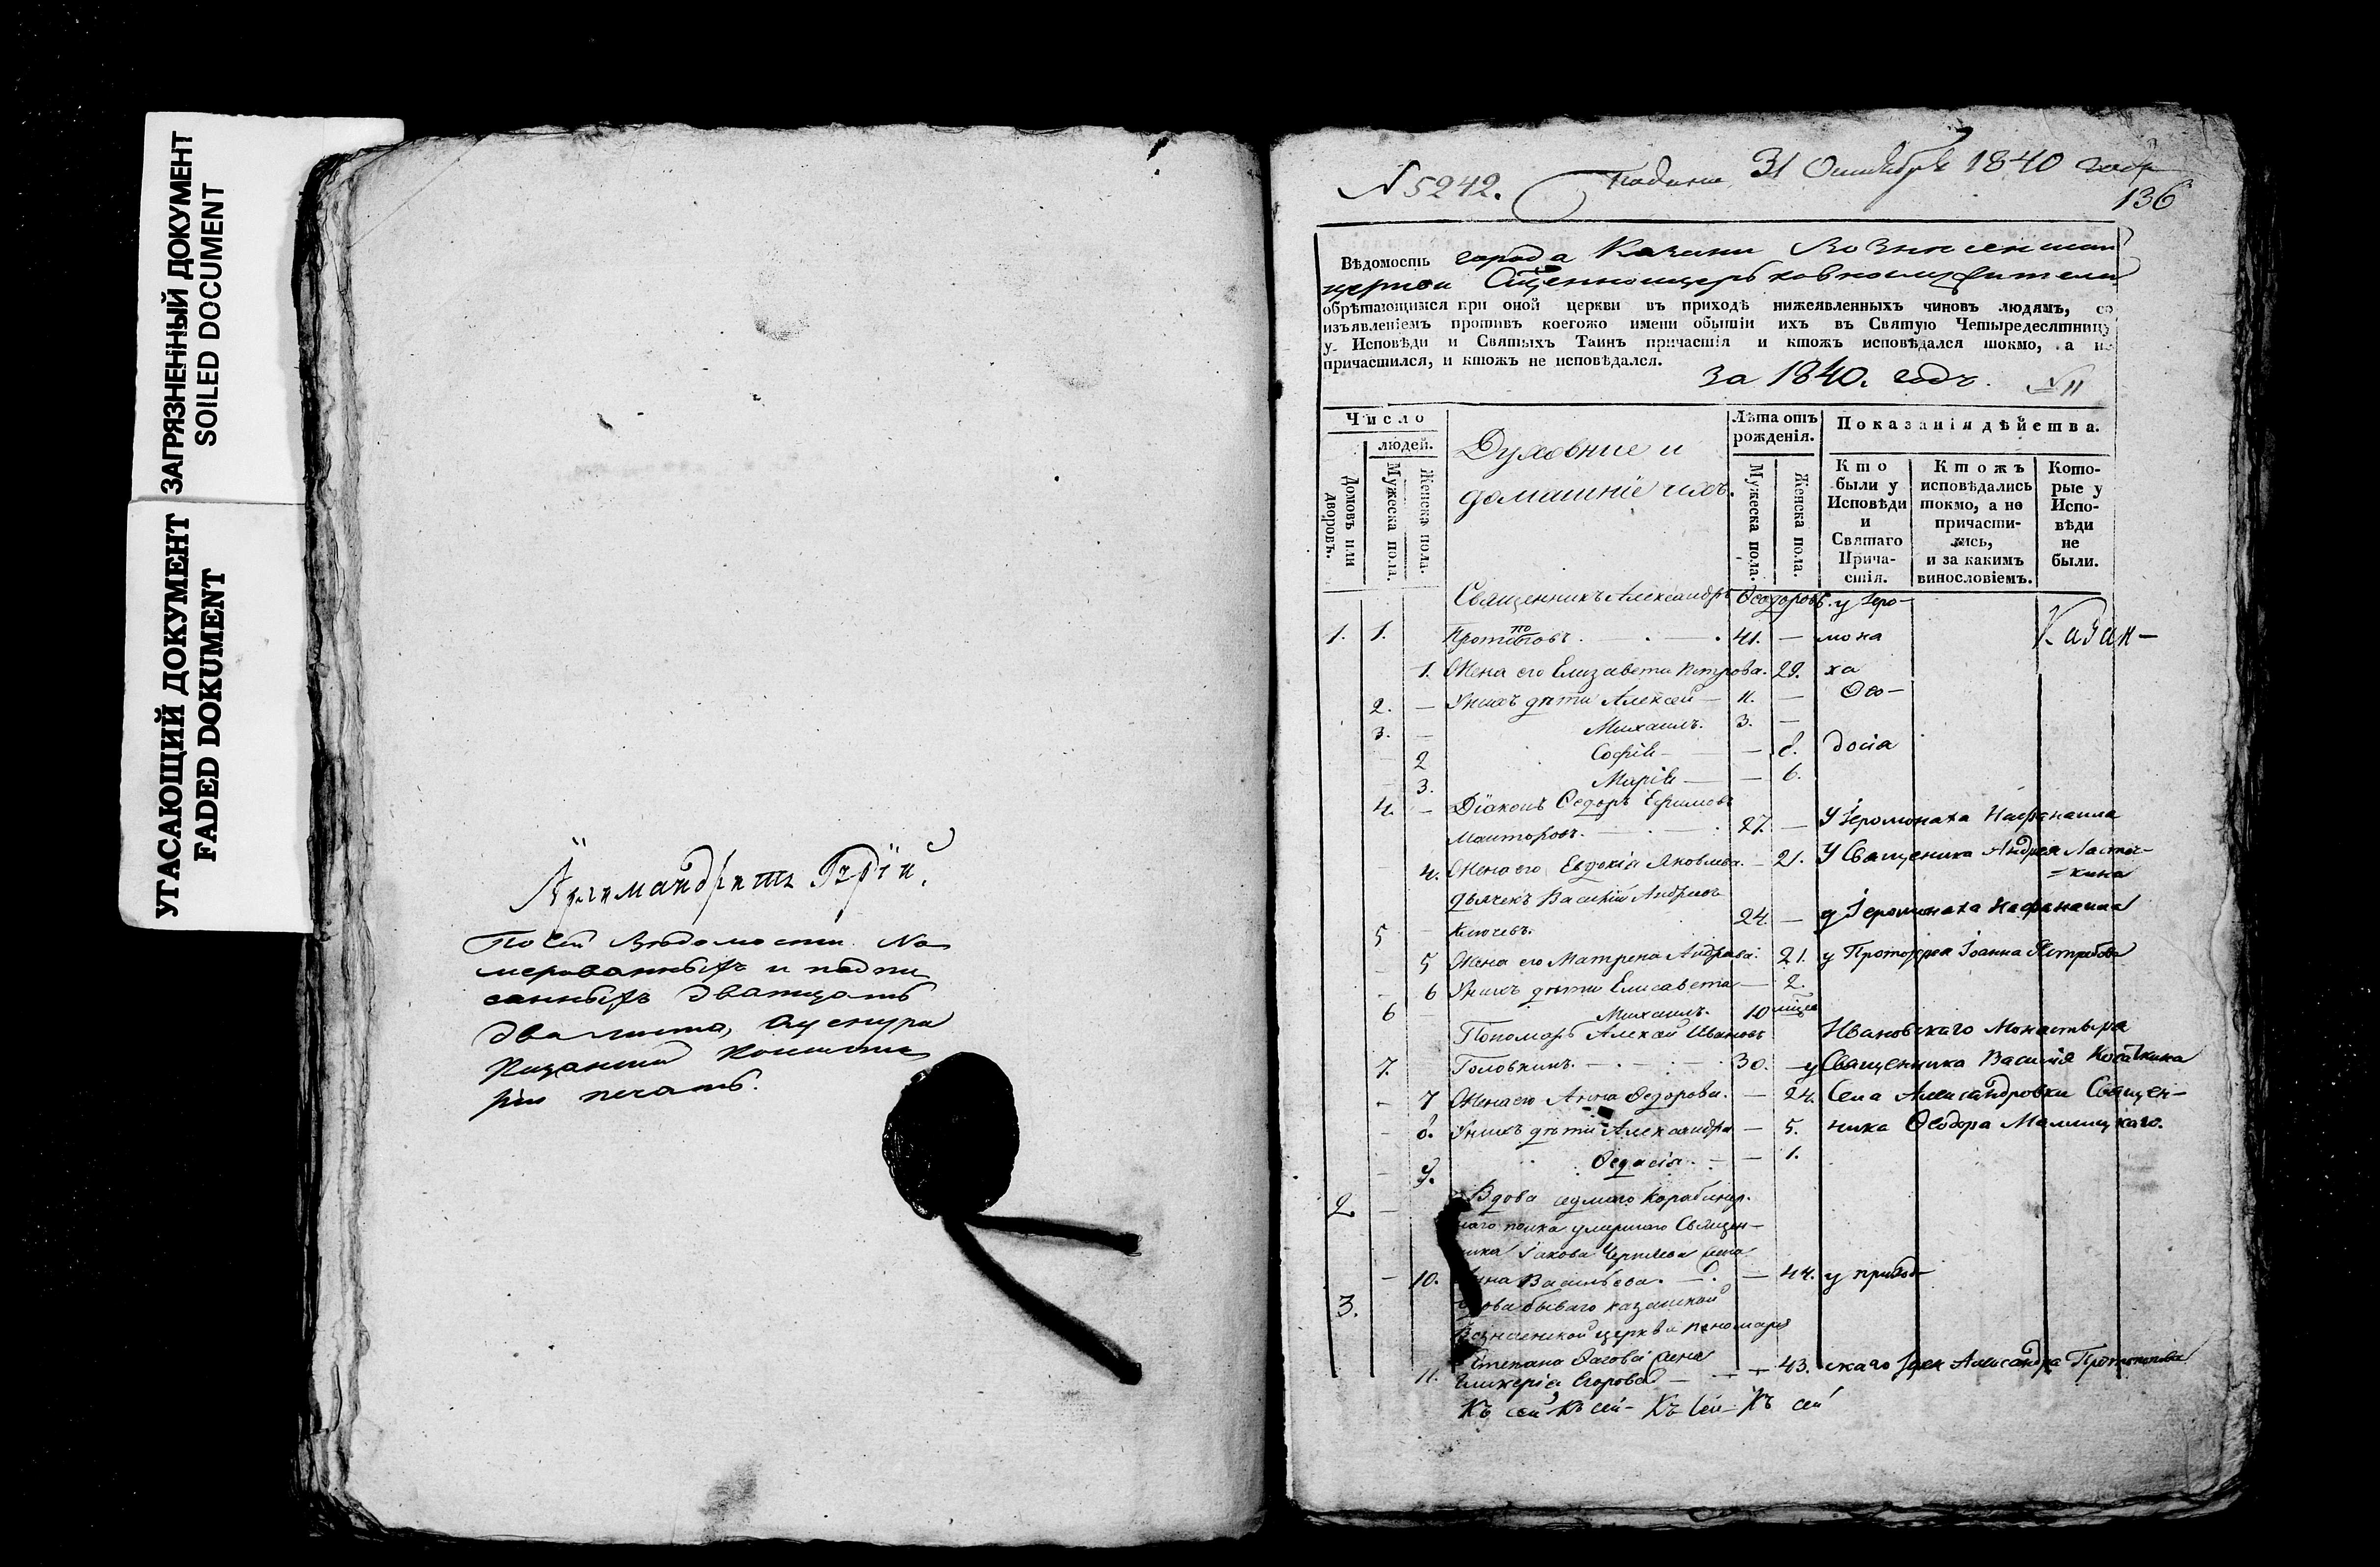 ЗАГРЯЗНЕННЫЙ ДОКУМЕНТ
SOILED DOCUMENT
УГАСАЮЩИЙ ДОКУМЕНТ
FADED DOKUMENT
Архимандритъ Гурій
По сей Ведомости Но
мерованныхъ и подпи
санныхъ дватцать
два листа, 
Казанской Консисто
ріи печать.
N 5242. Подана 31 Октября 1840 года
136
Вѣдомость города Казани Вознесенской
церкви Священноцерковнослужители
обрѣтающимся при оной церкви въ приходѣ нижеявленныхъ чиновъ людямъ, со
изъявленіемъ противъ коегожо имени бытіи ихъ въ Святую Четыредесятницу
у Исповѣди и Святыхъ Таинъ причастія и ктожъ исповѣдался токмо, а не
причастился, и ктожъ не исповѣдался.
За 1840. годъ. N 11
Число
людей.
Домовъ или дворовъ.
Мужеска пола.
Женска пола.
Духовные и
домашніе ихъ.
Лѣта отъ рожденія.
Мужеска пола.
Женска пола.
Показанія дѣйства.
Кто были у Исповѣди и Святаго Прича-стія.
Ктожъ исповѣдались токмо, а не причасти-лись, и за какимъ винословіемъ.
Кото-рые у Испо-вѣди не были.
Священникъ Александръ Ѳеодоровъ. у Іеро-
1. 1. Протопоповъ. 41. — мона Казан-
1. Жена его Елизавета Петрова. 29. ха
2. — У нихъ дѣти Алексѣй — 11. — Ѳео-
3. — Михаилъ. 3. —
2 Софія — — 8. досіа
3. Марія — — 6.
4. — Діаконъ Ѳедоръ Ефимовъ
27. — У Іеромонаха Нафанаила
4. Жена его Евдокія Яковлева. — 21. У Священика Андрея Ласточ-
=кина
Дьячекъ Василій Андреевъ
5 — Ключевъ. 24. — у Іеромонаха Нафанаила
5 Жена его Матрена Андреева. 21. у Протоіерея Іоанна Ястребова
6 У нихъ дѣти Елисавета — 2.
6 — Михаилъ. 10 мѣся
Пономарь Алексѣй Ивановъ Ивановскаго Монастыря
7. Головкинъ. 30. — у Священника Василія Косаткина
7 Жена его Анна Ѳедорова. — 24. Села Александровки Священ-
8. У нихъ дѣти Александра — 5. ника Ѳеодора Малицкаго.
9. — 1.
2. — Вдова седмаго Карабинер.
наго полка умершаго Священ-
ника Іакова Черняева жена
10. Анна Васильева. — 44. у приход-
3. Вдова бывшаго казанской
Вознесенской церкви пономаря
Степана жена
11. Гликерія Егорова — 43. скаго Іерея Александра Протопопова
Къ сей Къ сей Къ сей Къ сей